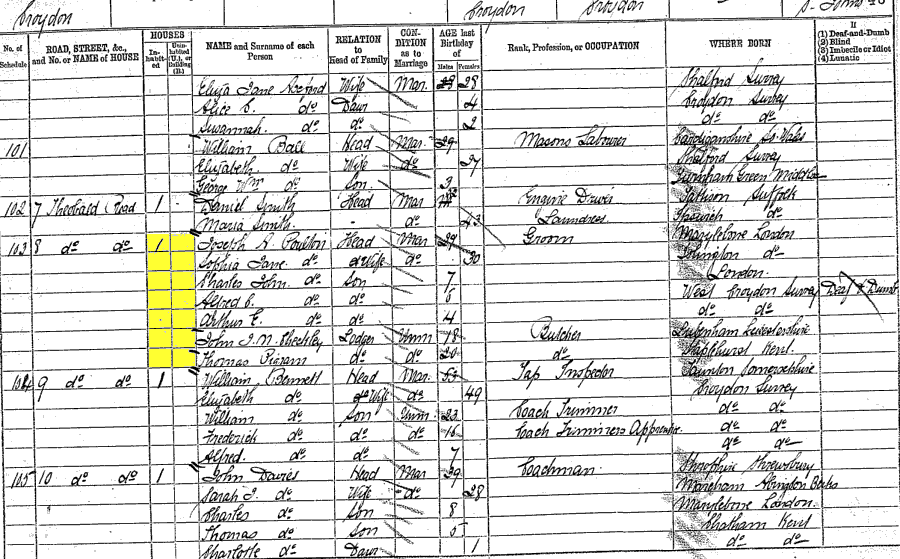 Croydon Croydon Croydon
No. of Schedule ROAD, STREET, &c., and No. or NAME of HOUSE HOUSES In-habit-ed Unin-habited (U.), or Building (B.) NAME and Surname of each Person RELATION to Head of Family CON-DITION as to Marriage AGE last Birthday of Males Females Rank, Profession, or OCCUPATION WHERE BORN If (1) Deaf-and-Dumb (2) Blind (3) Imbecile or Idiot (4) Lunatic
Eliza Jane Wife Mar. 28 Shalford Surrey
Alice C. do Daur 4 Croydon Surrey
Susannah. do do 2 do do
101 William Ball Head Mar 29 Masons Labourer Cardiganshire So. Wales
Elizabeth do Wife do 27 Shalford Surrey
George Wm do Son 3 Green Middlesex
102 7 Theobald Road 1 Daniel Smith Head Mar Engine Driver Suffolk
Maria Smith - do 43 Laundress Ipswich do
103 8 do do 1 Joseph A. Poulton Head Mar 29 Groom Marylebone London
Sophia Jane do Wife do 30 Islington do
Charles John do Son 7 London.
Alfred C. do do 6 West Croydon Surrey Deaf & Dumb
Arthur E. do do 4 do do
John J. W. Lodger Unm 18 Butcher Lubenham Leicestershire
Thomas Pigram do do 20 do Staplehurst Kent.
104 9 do do 1 William Bennett Head Mar. 53 Tap Inspector Taunton Somersetshire
Elizabeth do Wife do 49 Croydon Surrey
William do Son Unm. 23 Coach Trimmer do do
Frederick do do do 16 Coach Trimmers Apprentice do do
Alfred. do 7 do do
105 10 do do 1 John Davies Head Mar 39 Coachman Shropshire Shrewsbury
Sarah J. do Wife do 28 Marcham Abingdon Berks
Charles do Son 8 Marylebone London.
Thomas do Son 5 Chatham Kent
Charlotte do Daur 1 do do